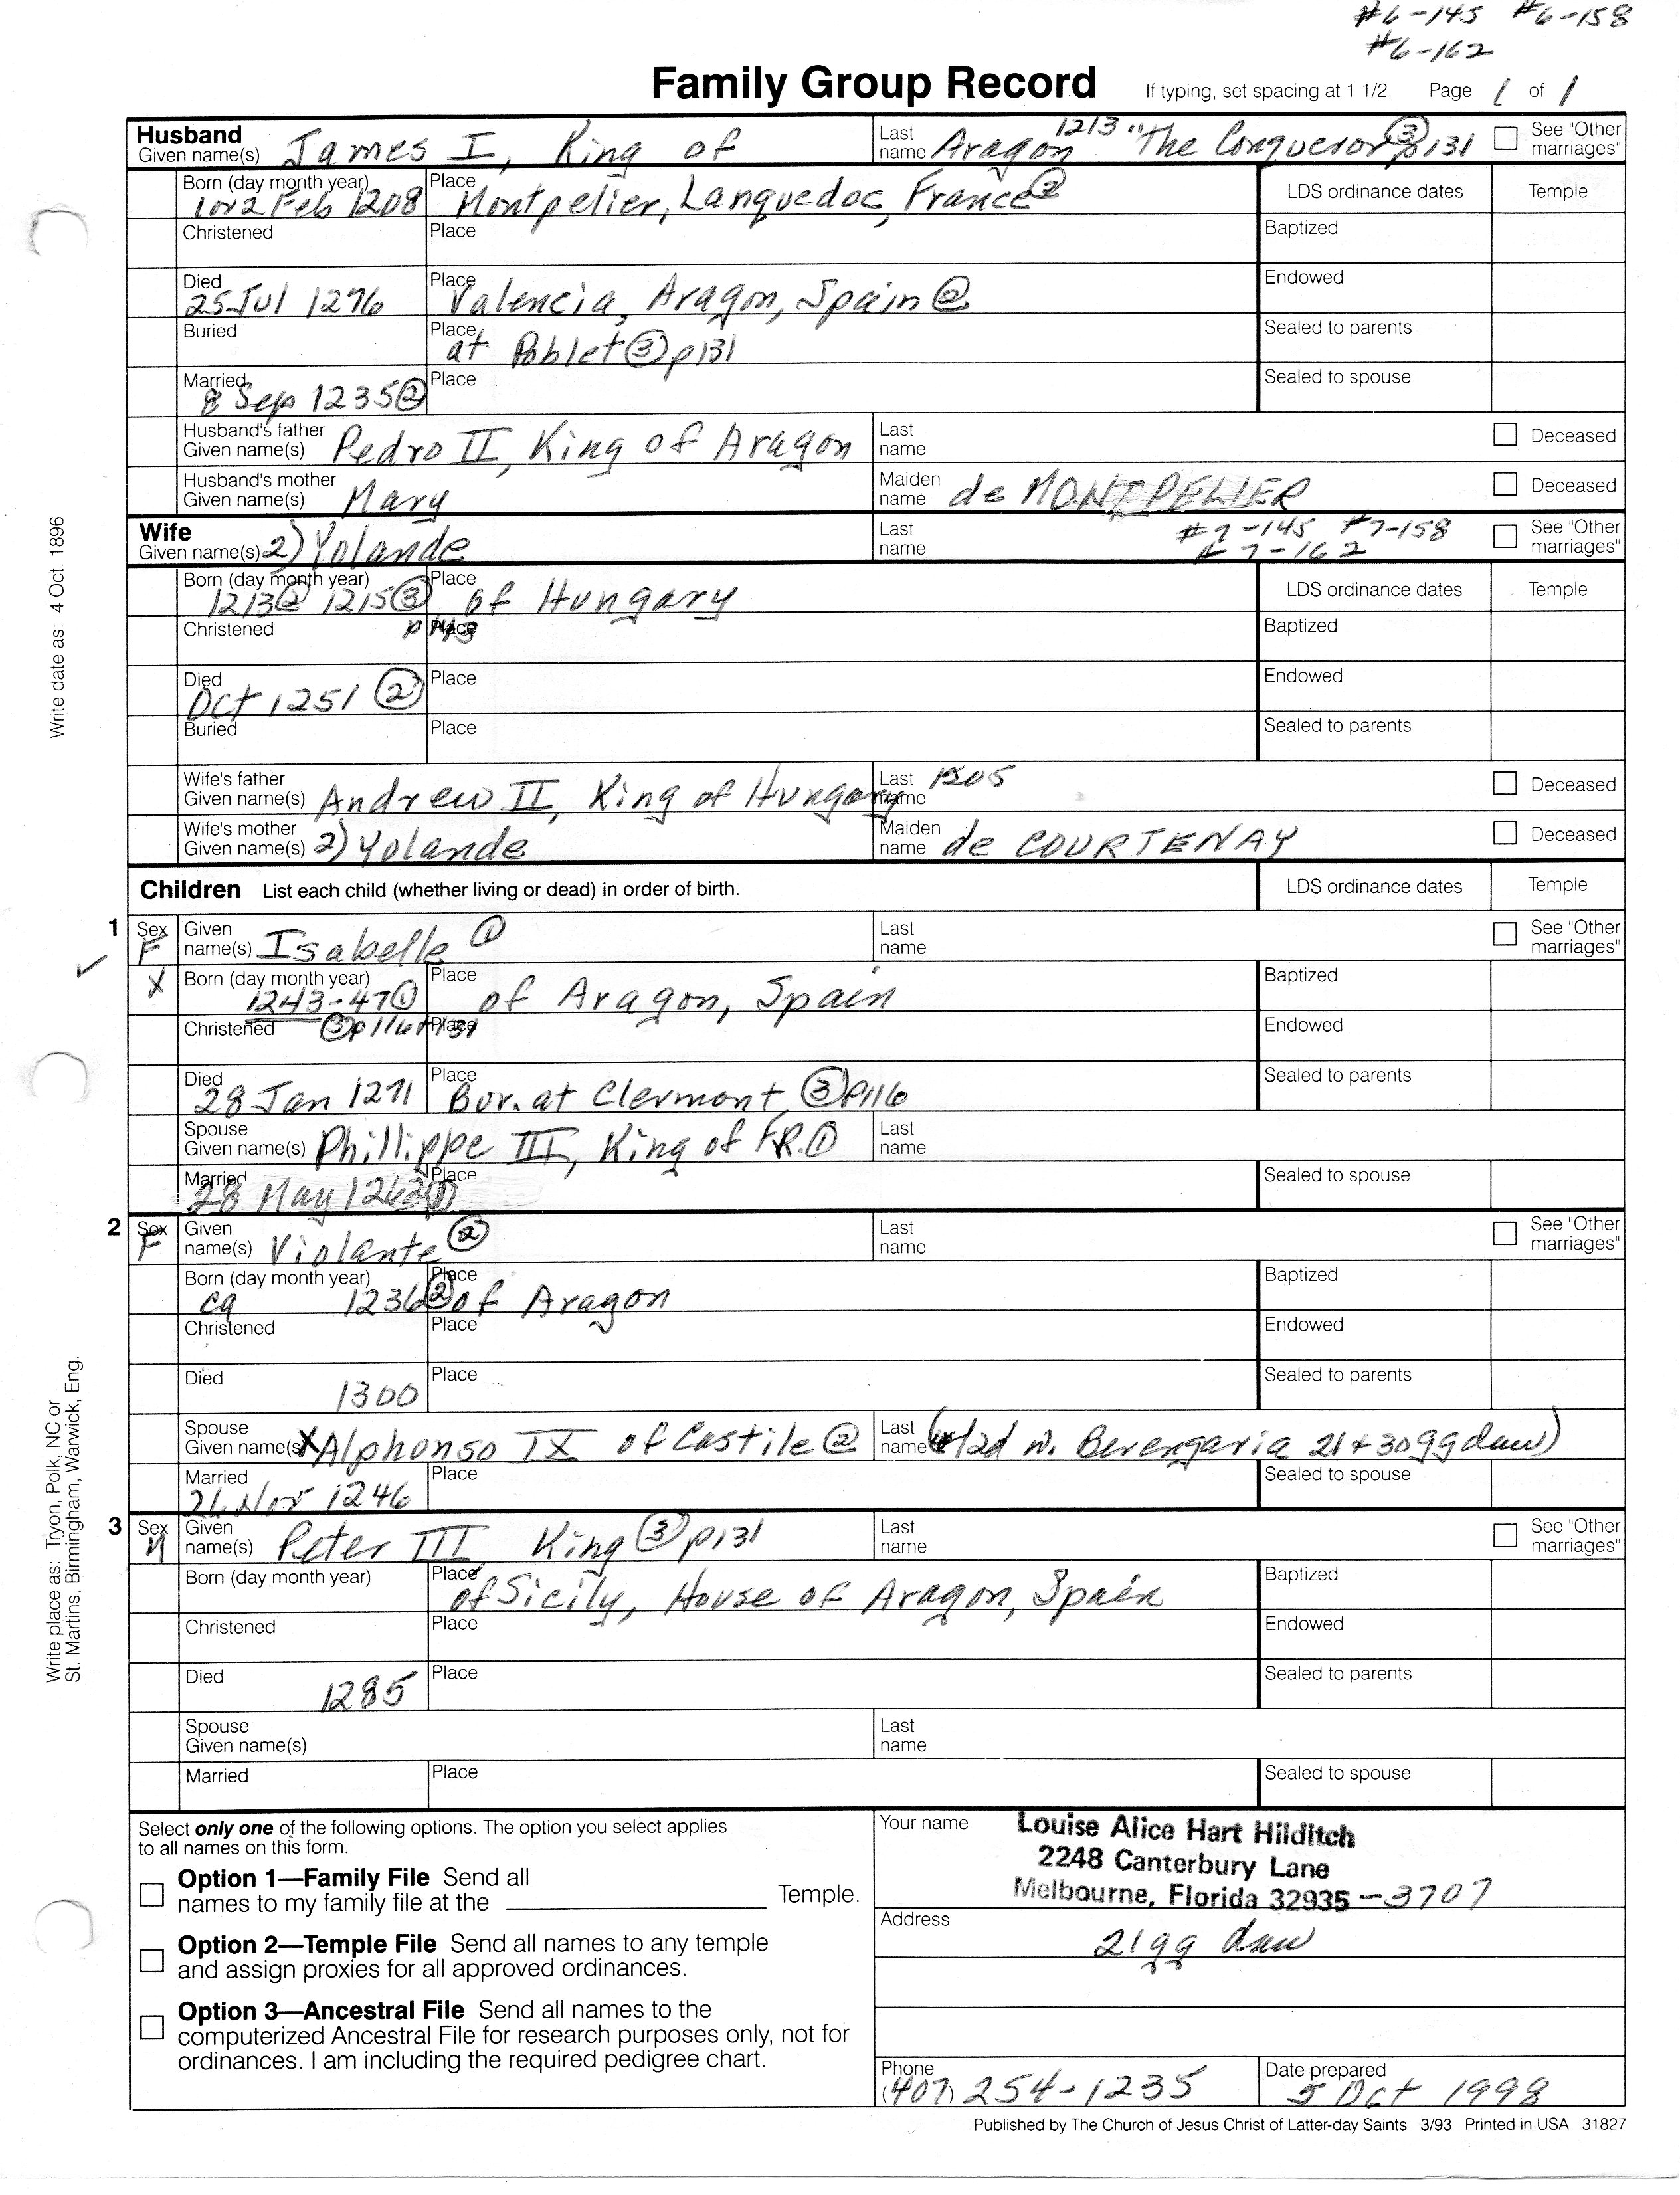 #6-145 #6-158
#6-162
Family Group Record If typing, set spacing at 1 1/2. Page 1 of 1
Husband
Given name(s) James I, King of Last name Aragon 1213 "The Conqueror ③ p131 See "Other marriages"
Born (day month year) 1 or 2 Feb 1208 Place Montpelier, Languedoc, France ② LDS ordinance dates Temple
Christened Place Baptized
Died 25 Jul 1276 Place Valencia, Aragon, Spain ② Endowed
Buried Place at Poblet ③ p131 Sealed to parents
Married 8 Sep 1235 ② Place Sealed to spouse
Husband's father Given name(s) Pedro II, King of Aragon Last name Deceased
Husband's mother Given name(s) Mary Maiden name de MONTPELIER Deceased
Wife
Given name(s) 2) Yolande Last name #7-145 #7-158 #7-162 See "Other marriages"
Born (day month year) 1213 ② 1215 ③ Place of Hungary LDS ordinance dates Temple
Christened Place Baptized
Died Oct 1251 ② Place Endowed
Buried Place Sealed to parents
Wife's father Given name(s) Andrew II, King of Hungary Last name Deceased
Wife's mother Given name(s) 2) Yolande Maiden name de COURTENAY Deceased
Children List each child (whether living or dead) in order of birth. LDS ordinance dates Temple
1 Sex F Given name(s) Isabelle ① Last name See "Other marriages"
X Born (day month year) 1243-47 ① Place of Aragon, Spain Baptized
Christened ③ p116 + 131 Place Endowed
Died 28 Jan 1271 Place Bur. at Clermont ③ p116 Sealed to parents
Spouse Given name(s) Phillippe III, King of FR. ① Last name
Married 28 May 1262 ① Place Sealed to spouse
2 Sex F Given name(s) Violante ② Last name See "Other marriages"
Born (day month year) ca 1236 ② Place of Aragon Baptized
Christened Place Endowed
Died 1300 Place Sealed to parents
Spouse Given name(s) X Alphonso IX of Castile ② Last name m. Berengaria 21 + 30 gg daw)
Married 26 Nov 1246 Place Sealed to spouse
3 Sex M Given name(s) Peter III King ③ p131 Last name See "Other marriages"
Born (day month year) Place of Sicily, House of Aragon, Spain Baptized
Christened Place Endowed
Died 1285 Place Sealed to parents
Spouse Given name(s) Last name
Married Place Sealed to spouse
Write date as: 4 Oct. 1896
Write place as: Tryon, Polk, NC or
St. Martins, Birmingham, Warwick, Eng.
Select only one of the following options. The option you select applies
to all names on this form.
Option 1—Family File Send all
names to my family file at the Temple.
Option 2—Temple File Send all names to any temple
and assign proxies for all approved ordinances.
Option 3—Ancestral File Send all names to the
computerized Ancestral File for research purposes only, not for
ordinances. I am including the required pedigree chart.
Your name Louise Alice Hart Hilditch
2248 Canterbury Lane
Melbourne, Florida 32935 -3707
Address 21gg daw
Phone (407) 254-1235 Date prepared 5 Oct 1998
Published by The Church of Jesus Christ of Latter-day Saints 3/93 Printed in USA 31827